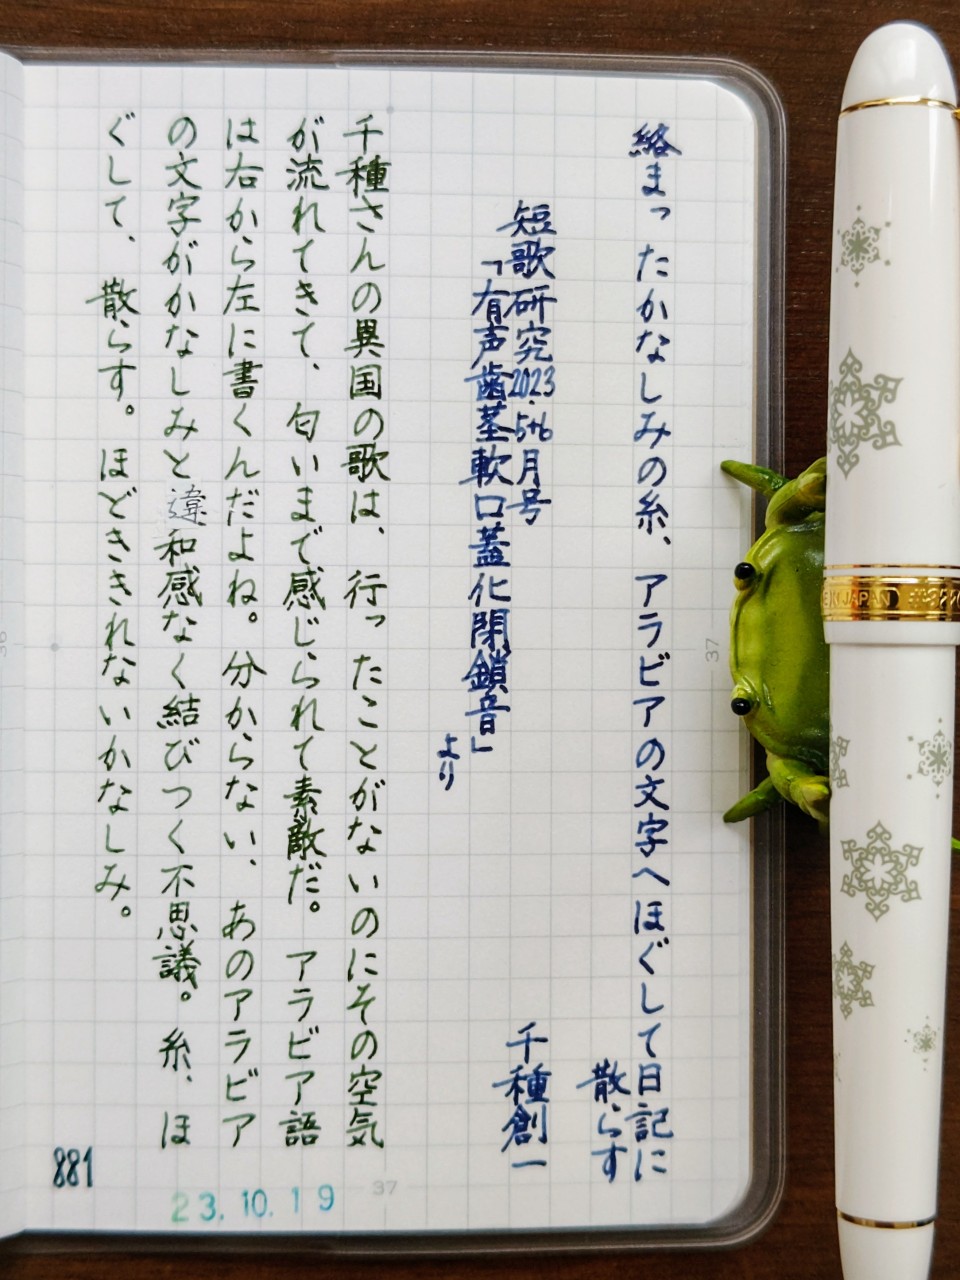 絡まったかなしみの糸、アラビアの文字へほぐして日記に
散らす
短歌研究2023.5+6月号
「有声歯茎軟口蓋化閉鎖音」
より
千種創一
千種さんの異国の歌は、行ったことがないのにその空気
が流れてきて、匂いまで感じられて素敵だ。アラビア語
は右から左に書くんだよね。分からない、あのアラビア
の文字がかなしみと違和感なく結びつく不思議。糸、ほ
ぐして、散らす。ほどききれないかなしみ。
881
23.10.19
37
37
JAPAN